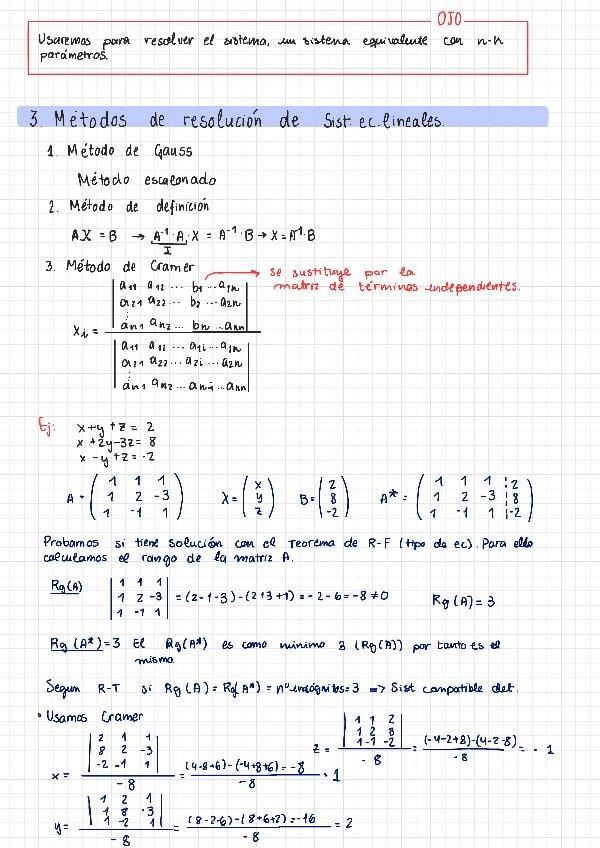 OJO
Usaremos para resolver el sistema, un sistema equivalente con n-h
parámetros.
3. Métodos de resolución de Sist. ec. lineales.
1. Método de Gauss
Método escalonado
2. Método de definición
AX = B → A⁻¹·A·X = A⁻¹·B → X = A⁻¹·B
I
3. Método de Cramer
se sustituye por la
matriz de términos independientes.
a11 a12 ... b1 ... a1n
a21 a22 ... b2 ... a2n
⋮
an1 an2 ... bn ... ann
Xi =
a11 a12 ... a1i ... a1n
a21 a22 ... a2i ... a2n
⋮
an1 an2 ... ani ... ann
Ej:
x+y+z = 2
x+2y-3z = 8
x-y+z = -2
A = ( 1 1 1 ; 1 2 -3 ; 1 -1 1 ) X = ( x ; y ; z ) B = ( 2 ; 8 ; -2 ) A* = ( 1 1 1 ¦ 2 ; 1 2 -3 ¦ 8 ; 1 -1 1 ¦ -2 )
Probamos si tiene solución con el Teorema de R-F (tipo de ec). Para ello
calculamos el rango de la matriz A.
Rg(A) | 1 1 1 ; 1 2 -3 ; 1 -1 1 | = (2-1-3)-(2+3+1) = -2-6 = -8 ≠ 0 Rg (A) = 3
Rg (A*) = 3 El Rg(A*) es como mínimo 3 (Rg(A)) por tanto es el
mismo.
Segun R-T si Rg (A) = Rg(A*) = nº incógnitas = 3 => Sist compatible det.
• Usamos Cramer
x = | 2 1 1 ; 8 2 -3 ; -2 -1 1 | / -8 = (4-8+6)-(-4+8+6) = -8 / -8 = 1
z = | 1 1 2 ; 1 2 8 ; 1 -1 -2 | / -8 = (-4-2+8)-(4-2-8) / -8 = - 1
y = | 1 2 1 ; 1 8 -3 ; 1 -2 1 | / -8 = (8-2-6)-(8+6+2) = -16 / -8 = 2